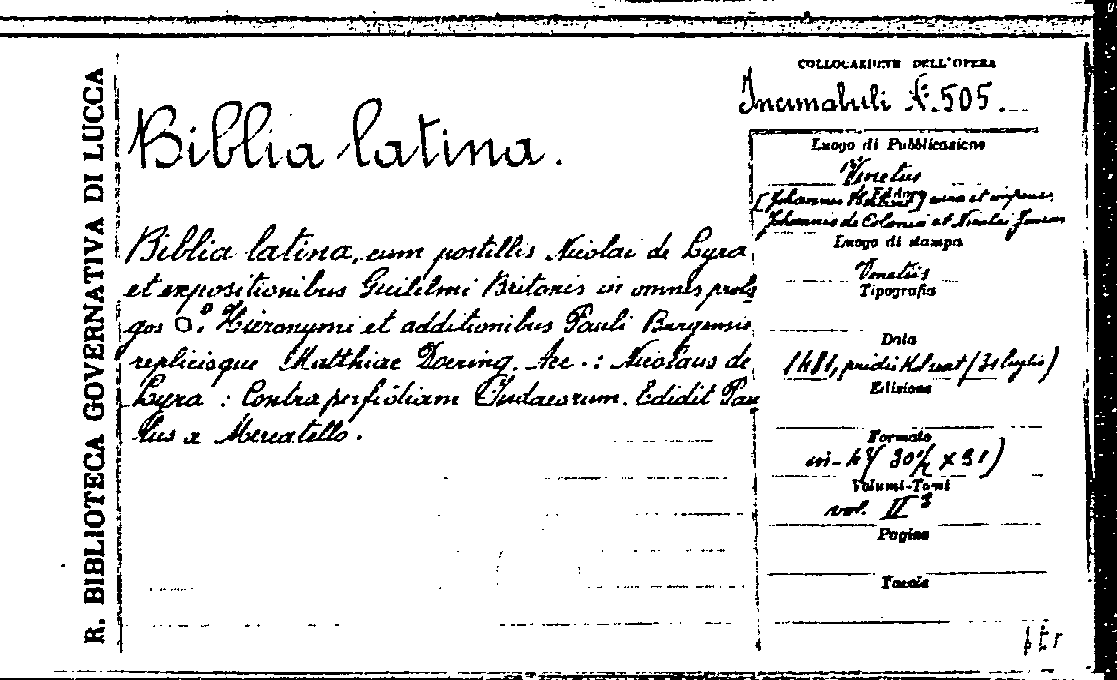 R. BIBLIOTECA GOVERNATIVA DI LUCCA
COLLOCAZIONE DELL'OPERA
Incunabuli N. 505.
Biblia latina.
Biblia latina, cum postillis Nicolai de Lyra
et expositionibus Guilelmi Britonis in omnes prolo
gos Hieronymi et additionibus Pauli Burgensis
replicisque Matthiae Doering. Acc.: Nicolaus de
Lyra : Contra perfidiam Iudaeorum. Edidit Pau
lus a Mercatello.
Luogo di Pubblicazione
Venetiis
Editore
[Johannes] cura et impensis
Johannis de Colonia et Nicolai Jenson
Luogo di stampa
Venetiis
Tipografia
Data
1481, pridie Kl. (31 luglio)
Edizione
Formato
in-4° (30½ x 21)
Volumi-Tomi
vol. II
Pagine
Tavole